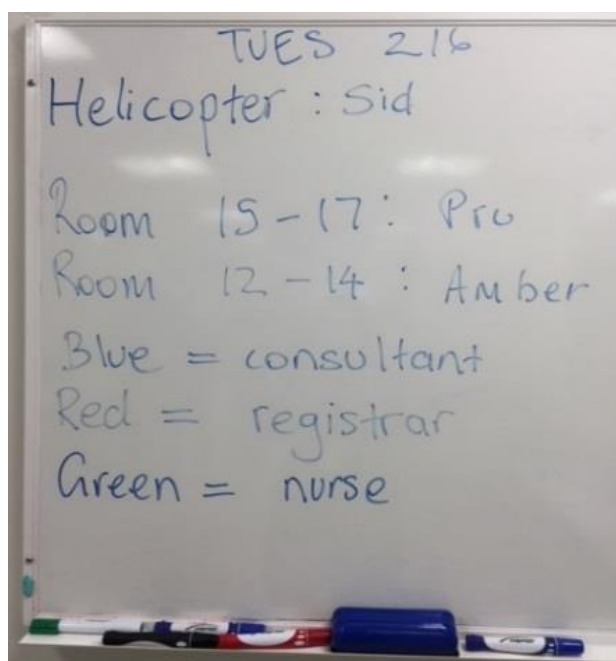 TUES 216
Helicopter : Sid
Room 15-17 : Pru
Room 12-14 : Amber
Blue = consultant
Red = registrar
Green = nurse